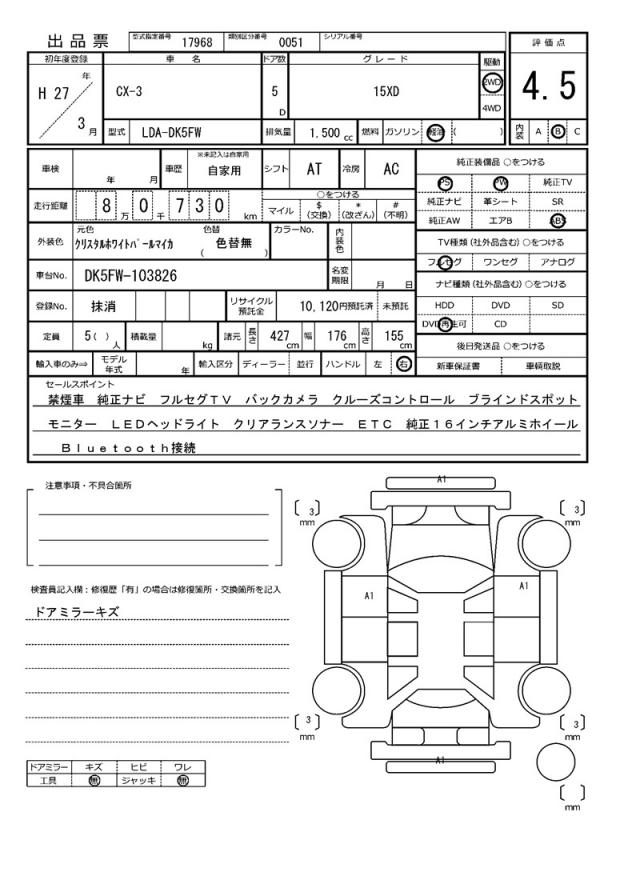 出品票 型式指定番号 17968 類別区分番号 0051 シリアル番号
初年度登録 車 名 ドア数 グレード 駆動 評価点
H 27 年 3 月 CX-3 5 D 15XD 2WD 4WD 4.5
型式 LDA-DK5FW 排気量 1.500 cc 燃料 ガソリン 軽油 ( ) 内装 A B C
車検 年 月 車歴 ※未記入は自家用 自家用 シフト AT 冷房 AC
走行距離 8 万 0 千 7 3 0 km ○をつける マイル $ (交換) * (改ざん) # (不明)
外装色 元色 クリスタルホワイトパールマイカ 色替 ( 色替無 ) カラーNo. 内装色
車台No. DK5FW-103826 名変期限 月 日
登録No. 抹消 リサイクル預託金 10,120円預託済 未預託
定員 5( ) 人 積載量 kg 諸元 長さ 427 cm 幅 176 cm 高さ 155 cm
輸入車のみ⇒ モデル年式 年 輸入区分 ディーラー 並行 ハンドル 左 右
純正装備品 ○をつける
PS PW 純正TV
純正ナビ 革シート SR
純正AW エアB ABS
TV種類(社外品含む)○をつける
フルセグ ワンセグ アナログ
ナビ種類(社外品含む)○をつける
HDD DVD SD
DVD再生可 CD
後日発送品 ○をつける
新車保証書 車輌取説
セールスポイント
禁煙車 純正ナビ フルセグTV バックカメラ クルーズコントロール ブラインドスポット
モニター LEDヘッドライト クリアランスソナー ETC 純正16インチアルミホイール
Bluetooth接続
注意事項・不具合箇所
検査員記入欄:修復歴「有」の場合は修復箇所・交換箇所を記入
ドアミラーキズ
ドアミラー キズ ヒビ ワレ
工具 無 ジャッキ 無
A1
〔 3 〕 mm 〔 3 〕 mm
A1 A1
〔 3 〕 mm 〔 3 〕 mm
A1
〔 〕 mm